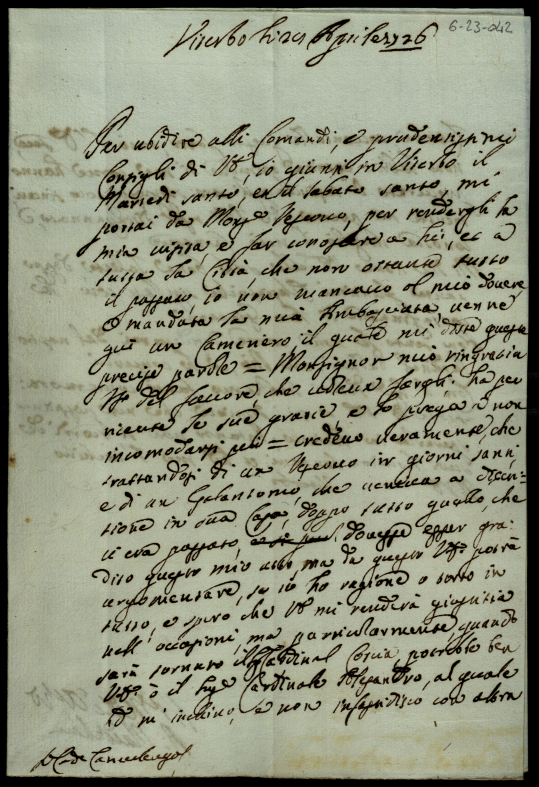 6-23-042
Viterbo li 24 Aprile 1726
Per ubidire alli Comandi, e prudentissimi
Consigli di VS., io giunsi in Viterbo il
Martedi santo, et il sabato santo, mi
portai da Monsr. Vescovo, per rendergli la
mia visita, e far conoscere a lui, et a
tutta la Città, che non ostante tutto
il passato, io non mancavo al mio dovere,
e mandata la mia Imbasciata, venne
qui un Cameriero, il quale mi disse queste
precise parole = Monsignor mio ringrazia
VS. del favore, che voleva fargli: ha per
ricevute le sue grazie e lo prega à non
incomodarsi più = credevo veramente, che
trattandosi di un Vescovo in giorni santi,
e di un Galantomo, che veniva a
in sua Casa, doppo tutto quello, che
vi era passato, dovesse esser gra-
dito questo mio atto, ma da questo VS. potrà
argomentare, se io ho ragione o torto in
tutto, e spero che VS. mi renderà giustizia
nell'occasioni, ma particolarmente, quando
sarà tornato il Cardinal Coscia, potrebbe ben
VS. o il Sigr. Cardinale Alessandro, al quale
mi inchino, e non infastidisco con altra